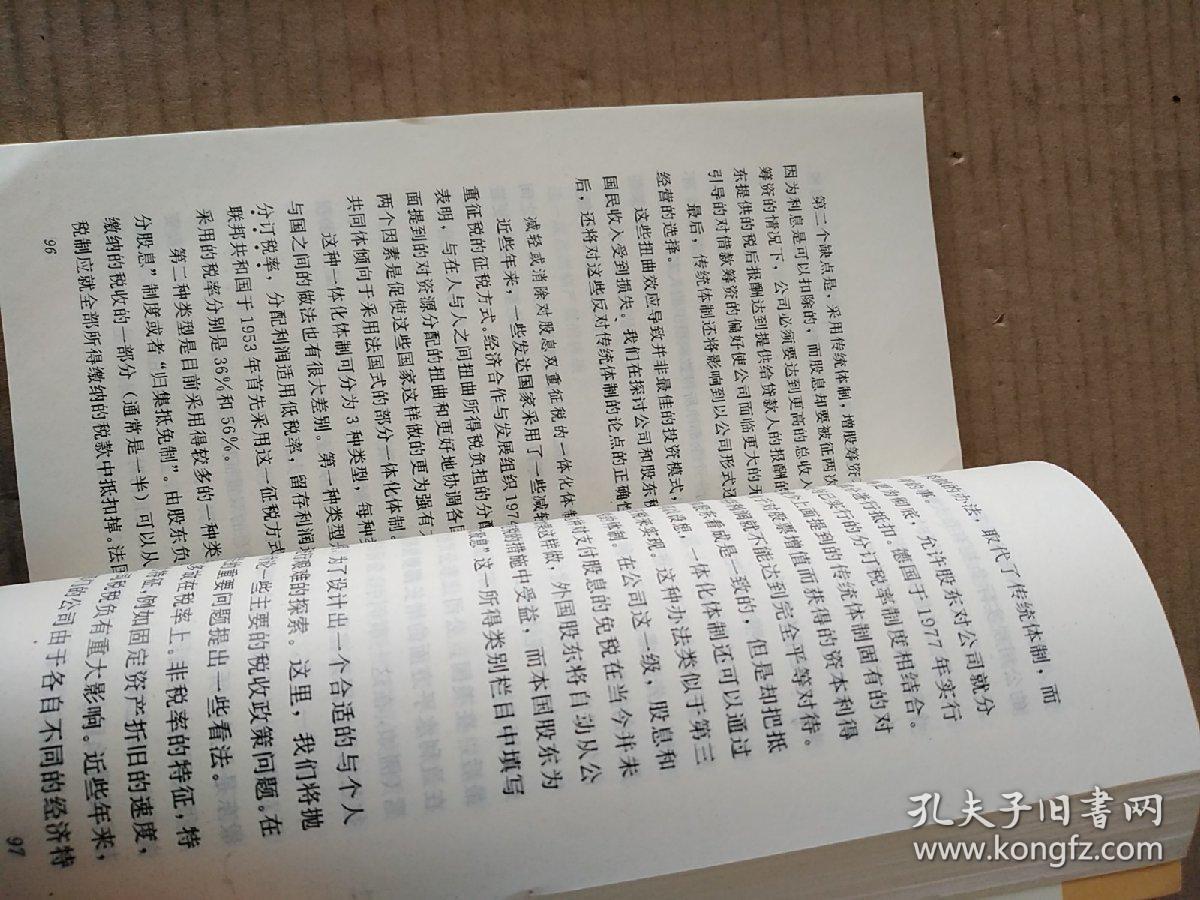 第二个缺点是,采用传统体制,增股筹资
因为利息是可以扣除的,而股息却要被征两次
筹资的情况下,公司必须要达到更高的总收入
东提供的税后报酬达到提供给贷款人的报酬的
引导的对借款筹资的偏好使公司面临更大的
最后,传统体制还将影响到以公司形式还
经营的选择。
这些扭曲效应导致并非最佳的投资模式,
国民收入受到损失。我们在探讨公司和股东税
后,还将对这些反对传统体制的论点的正确性
减轻或消除对股息双重征税的一体化体制
近些年来,一些发达国家采用了一些减轻
重征税的征税方式。经济合作与发展组织1974
表明,与在人与人之间扭曲所得税负担的分配
面提到的对资源分配的扭曲和更好地协调各国
两个因素是促使这些国家这样做的更为强有
共同体倾向于采用法国式的部分一体化体制。
这种一体化体制可分为3种类型,每种
与国之间的做法也有很大差别。第一种类型
分订税率,分配利润适用低税率,留存利润
联邦共和国于1953年首先采用这一征税方式
采用的税率分别是36%和56%。
第二种类型是目前采用得较多的一种类
分股息”制度或者“归集抵免制”。由股东负
缴纳的税收的一部分(通常是一半)可以从
税制应就全部所得缴纳的税款中抵扣掉。法国
96
的办法,取代了传统体制,而
允许股东对公司就分
进行抵扣。德国于1977年实行
实行的分订税率制度相结合。
面提到的传统体制固有的对
股票增值而获得的资本利得
就不能达到完全平等对待。
看成是一致的,但是却把抵
一体化体制还可以通过
来实现。这种办法类似于第三
制。在公司这一级,股息和
支付股息的免税在当今并未
这样做,外国股东将自动从公
措施中受益,而本国股东为
股息”这一所得类别栏目中填写
为了设计出一个合适的与个人
艰难的探索。这里,我们将抛
一些主要的税收政策问题。在
重要问题提出一些看法。
在税率上。非税率的特征,特
征,例如固定资产折旧的速度,
税负有重大影响。近些年来,
的公司由于各自不同的经济特
97
孔夫子旧书网
www.kongfz.com